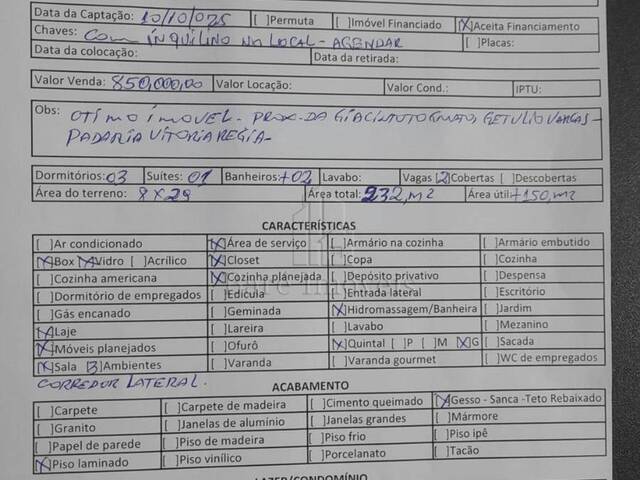 Data da Captação: 10/10/025 [ ]Permuta [ ]Imóvel Financiado [X]Aceita Financiamento
Chaves: COM INQUILINO NO LOCAL - AGENDAR [ ]Placas:
Data da colocação: Data da retirada:
Valor Venda: 850,000,00 Valor Locação: Valor Cond.: IPTU:
Obs: OTIMO IMOVEL - PROX. DA GIACINTO TOGNATO, GETULIO VARGAS -
PADARIA VITORIA REGIA -
Dormitórios: 03 Suítes: 01 Banheiros: +02 Lavabo: Vagas [2]Cobertas [ ]Descobertas
Área do terreno: 8 X 29 Área total: 232, m2 Área útil: +150, m2
CARACTERÍSTICAS
[ ]Ar condicionado [X]Área de serviço [ ]Armário na cozinha [ ]Armário embutido
[X]Box [X]Vidro [ ]Acrílico [X]Closet [ ]Copa [ ]Cozinha
[ ]Cozinha americana [X]Cozinha planejada [ ]Depósito privativo [ ]Despensa
[ ]Dormitório de empregados [ ]Edícula [ ]Entrada lateral [ ]Escritório
[ ]Gás encanado [ ]Geminada [X]Hidromassagem/Banheira [ ]Jardim
[X]Laje [ ]Lareira [ ]Lavabo [ ]Mezanino
[X]Móveis planejados [ ]Ofurô [X]Quintal [ ]P [ ]M [X]G [ ]Sacada
[X]Sala [3]Ambientes [ ]Varanda [ ]Varanda gourmet [ ]WC de empregados
CORREDOR LATERAL.
ACABAMENTO
[ ]Carpete [ ]Carpete de madeira [ ]Cimento queimado [X]Gesso - Sanca -Teto Rebaixado
[ ]Granito [ ]Janelas de alumínio [ ]Janelas grandes [ ]Mármore
[ ]Papel de parede [ ]Piso de madeira [ ]Piso frio [ ]Piso ipê
[X]Piso laminado [ ]Piso vinílico [ ]Porcelanato [ ]Tacão
LAZER/CONDOMÍNIO